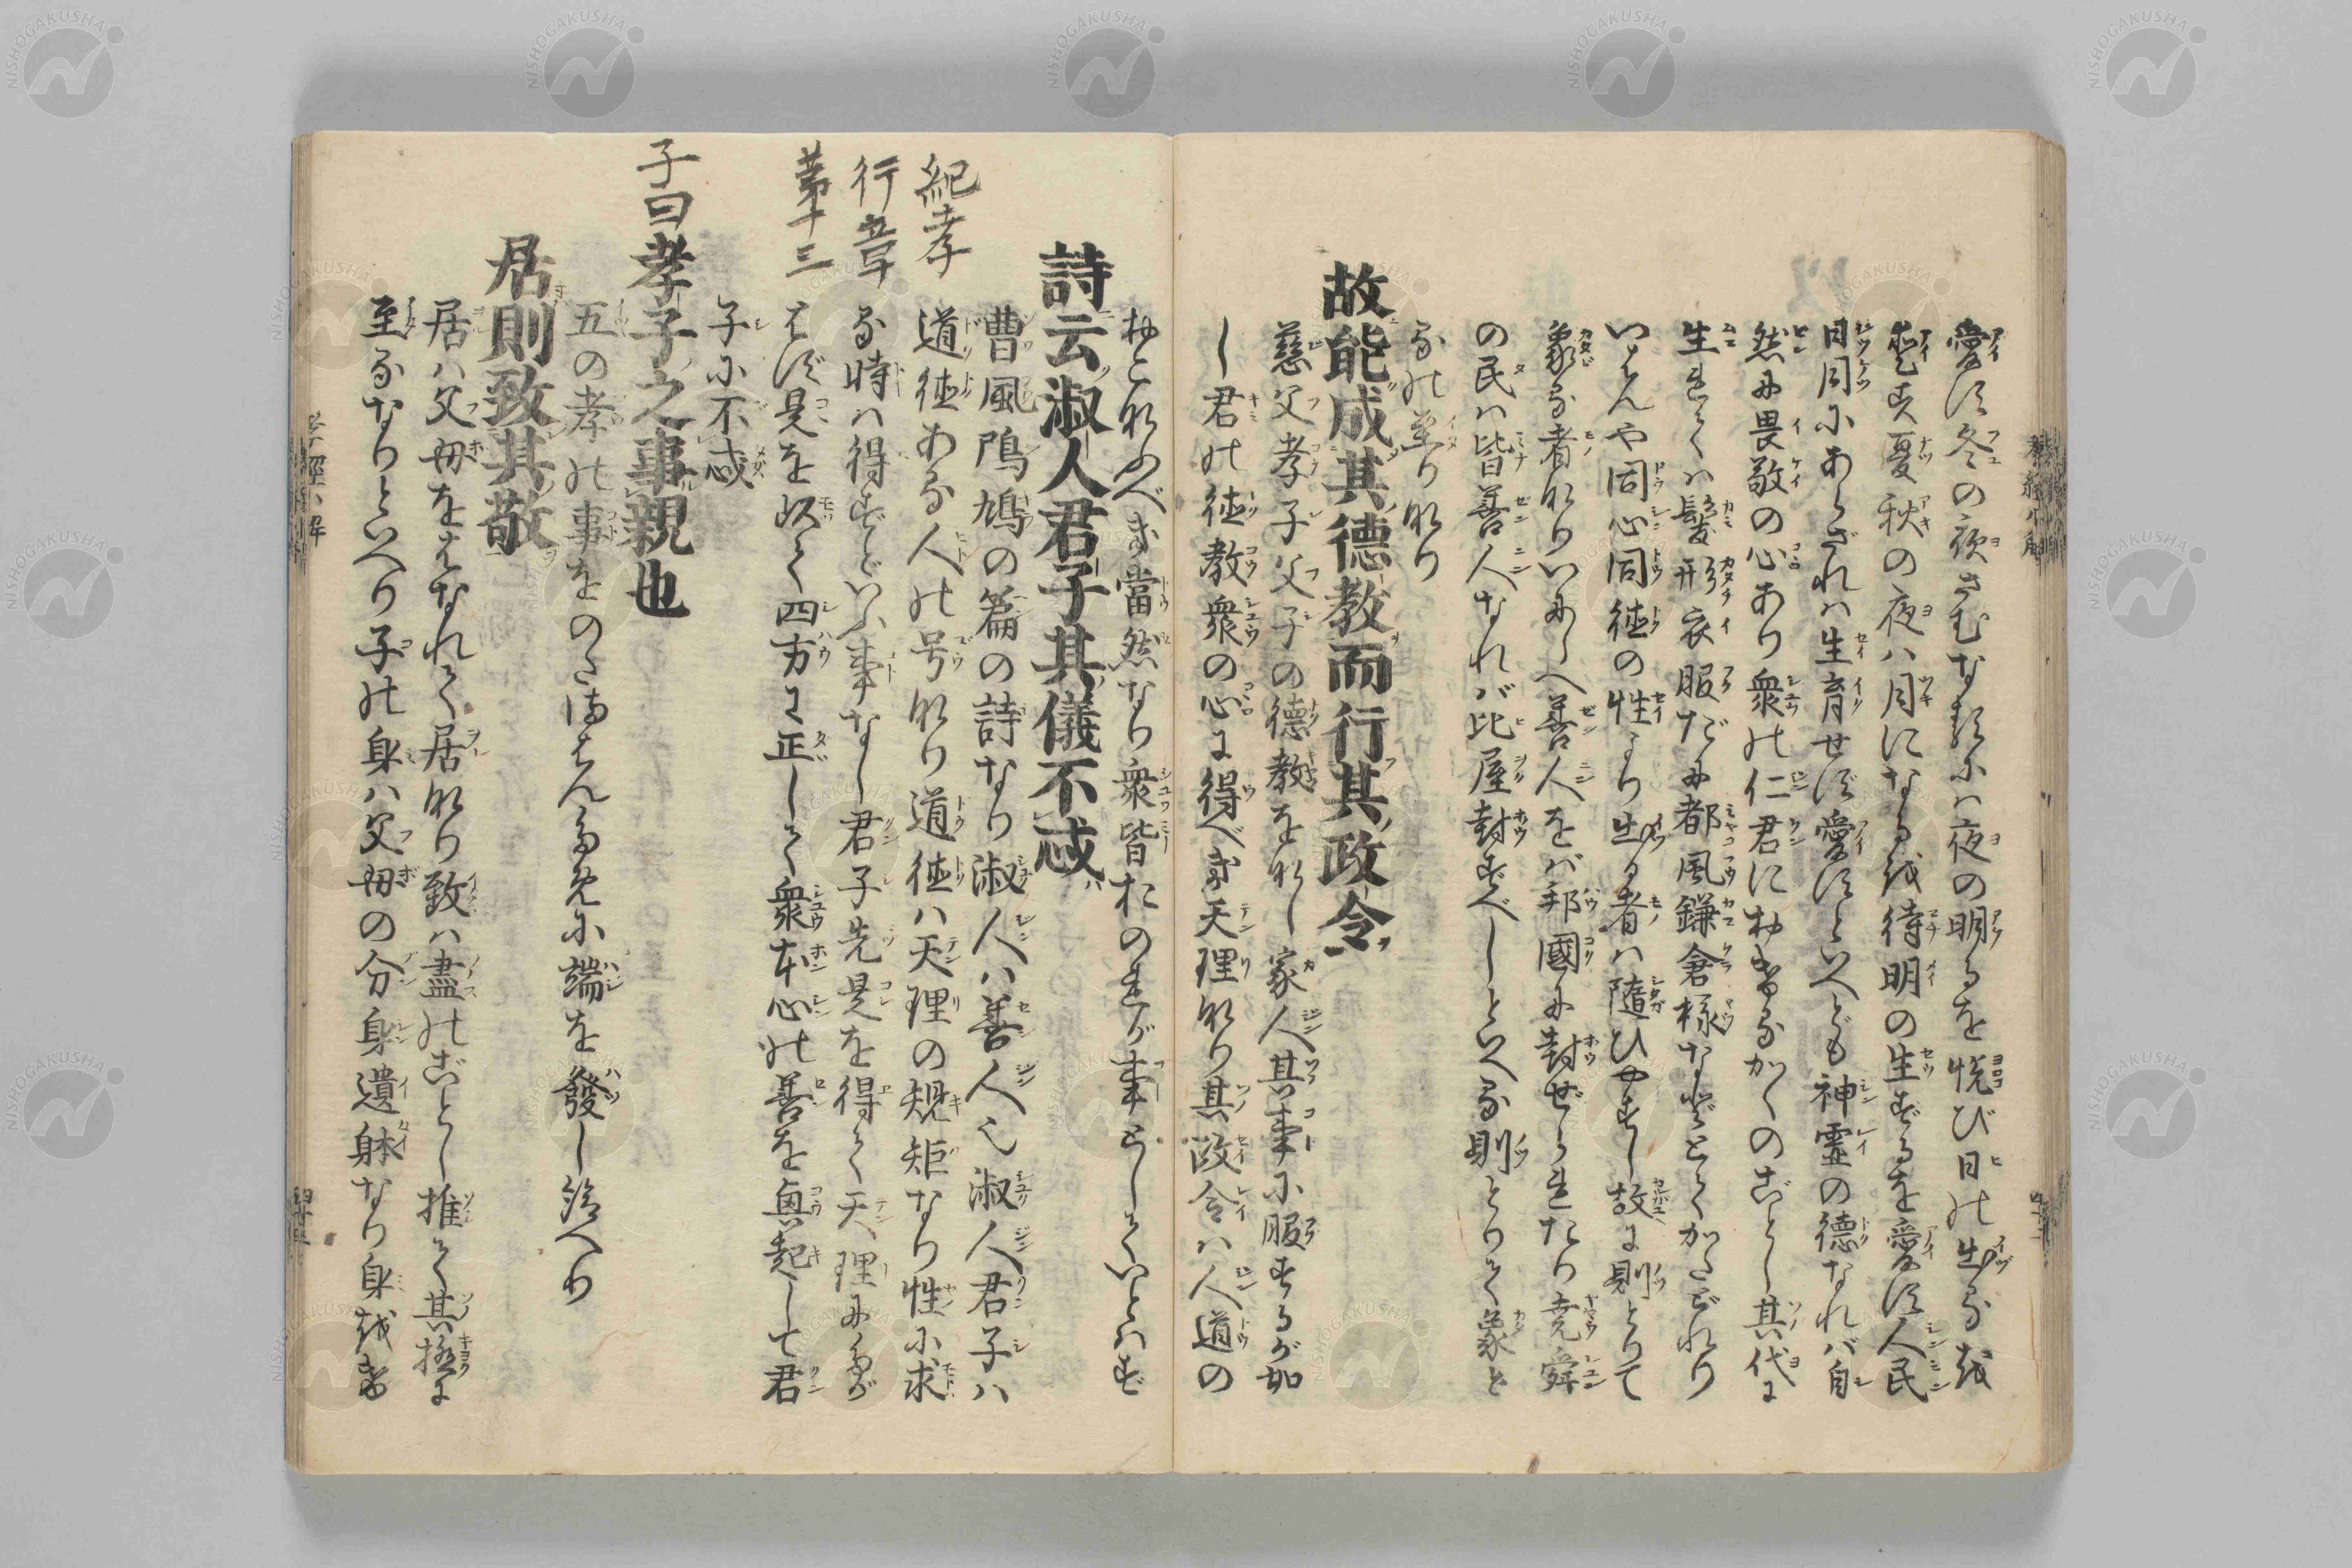 愛す冬の夜さむなるにハ夜の明るを悦び日の出る越
愛す夏秋の夜ハ月になる越待明の生ずるを愛す人民
日月にあらざれハ生育せず愛すといへども神霊の徳なれバ自
然に畏敬の心あり衆の仁君におけるかくのごとし其代に
生まてハ髪形衣服だに都風鎌倉様などとてかたどれり
いはんや同心同徳の性より出る者ハ随ひやすし故に則とりて
象る者なりいにしへ善人をバ邦國に封ぜられたり尭舜
の民ハ皆善人なれバ比屋封ずべしといへる則とりて象と
るの至りなり
故能成其德教而行其政令
慈父孝子父子の德教をなし家人其事に服するが如
し君の徳教衆の心に得べき天理なり其政令ハ人道の
おこなふべき當然なり衆皆おのれが事としていとハず
詩云淑人君子其儀不忒
曹風鳲鳩の篇の詩なり淑人ハ善人也淑人君子ハ
紀孝
道徳ある人の号なり道徳ハ天理の規矩なり性に求
行章
る時ハ得ずといふ事なし君子先是を得て天理にたが
第十三
はず是を以て四方に正しして衆本心の善を興起して君
子に不忒
子曰孝子之事親也
五の孝の事をのたまはんために端を發し給へり
居則致其敬
居ハ父母をはなれて居なり致ハ盡のごとし推て其極に
至るなりといへり子の身ハ父母の分身遺躰なり身越き